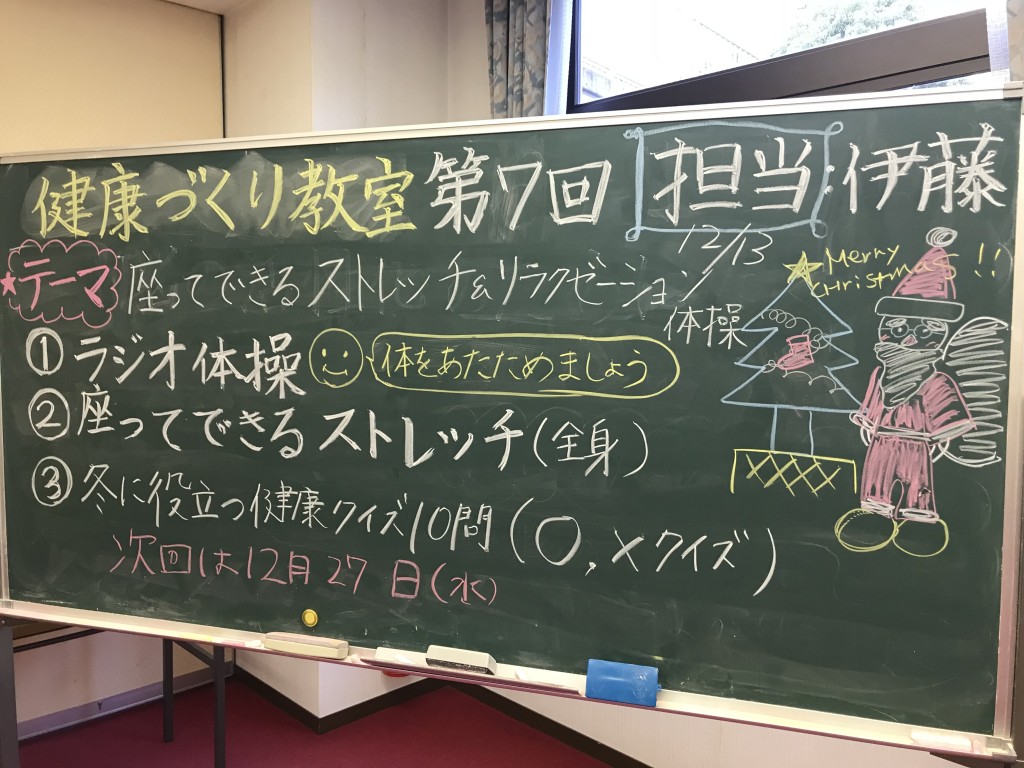 健康づくり教室 第7回 担当:伊藤
12/13
★テーマ 座ってできるストレッチ&リラクゼーション
体操
Merry
CHristmas!!
① ラジオ体操 体をあたためましょう
② 座ってできるストレッチ(全身)
③ 冬に役立つ健康クイズ10問(〇,×クイズ)
次回は12月27日(水)